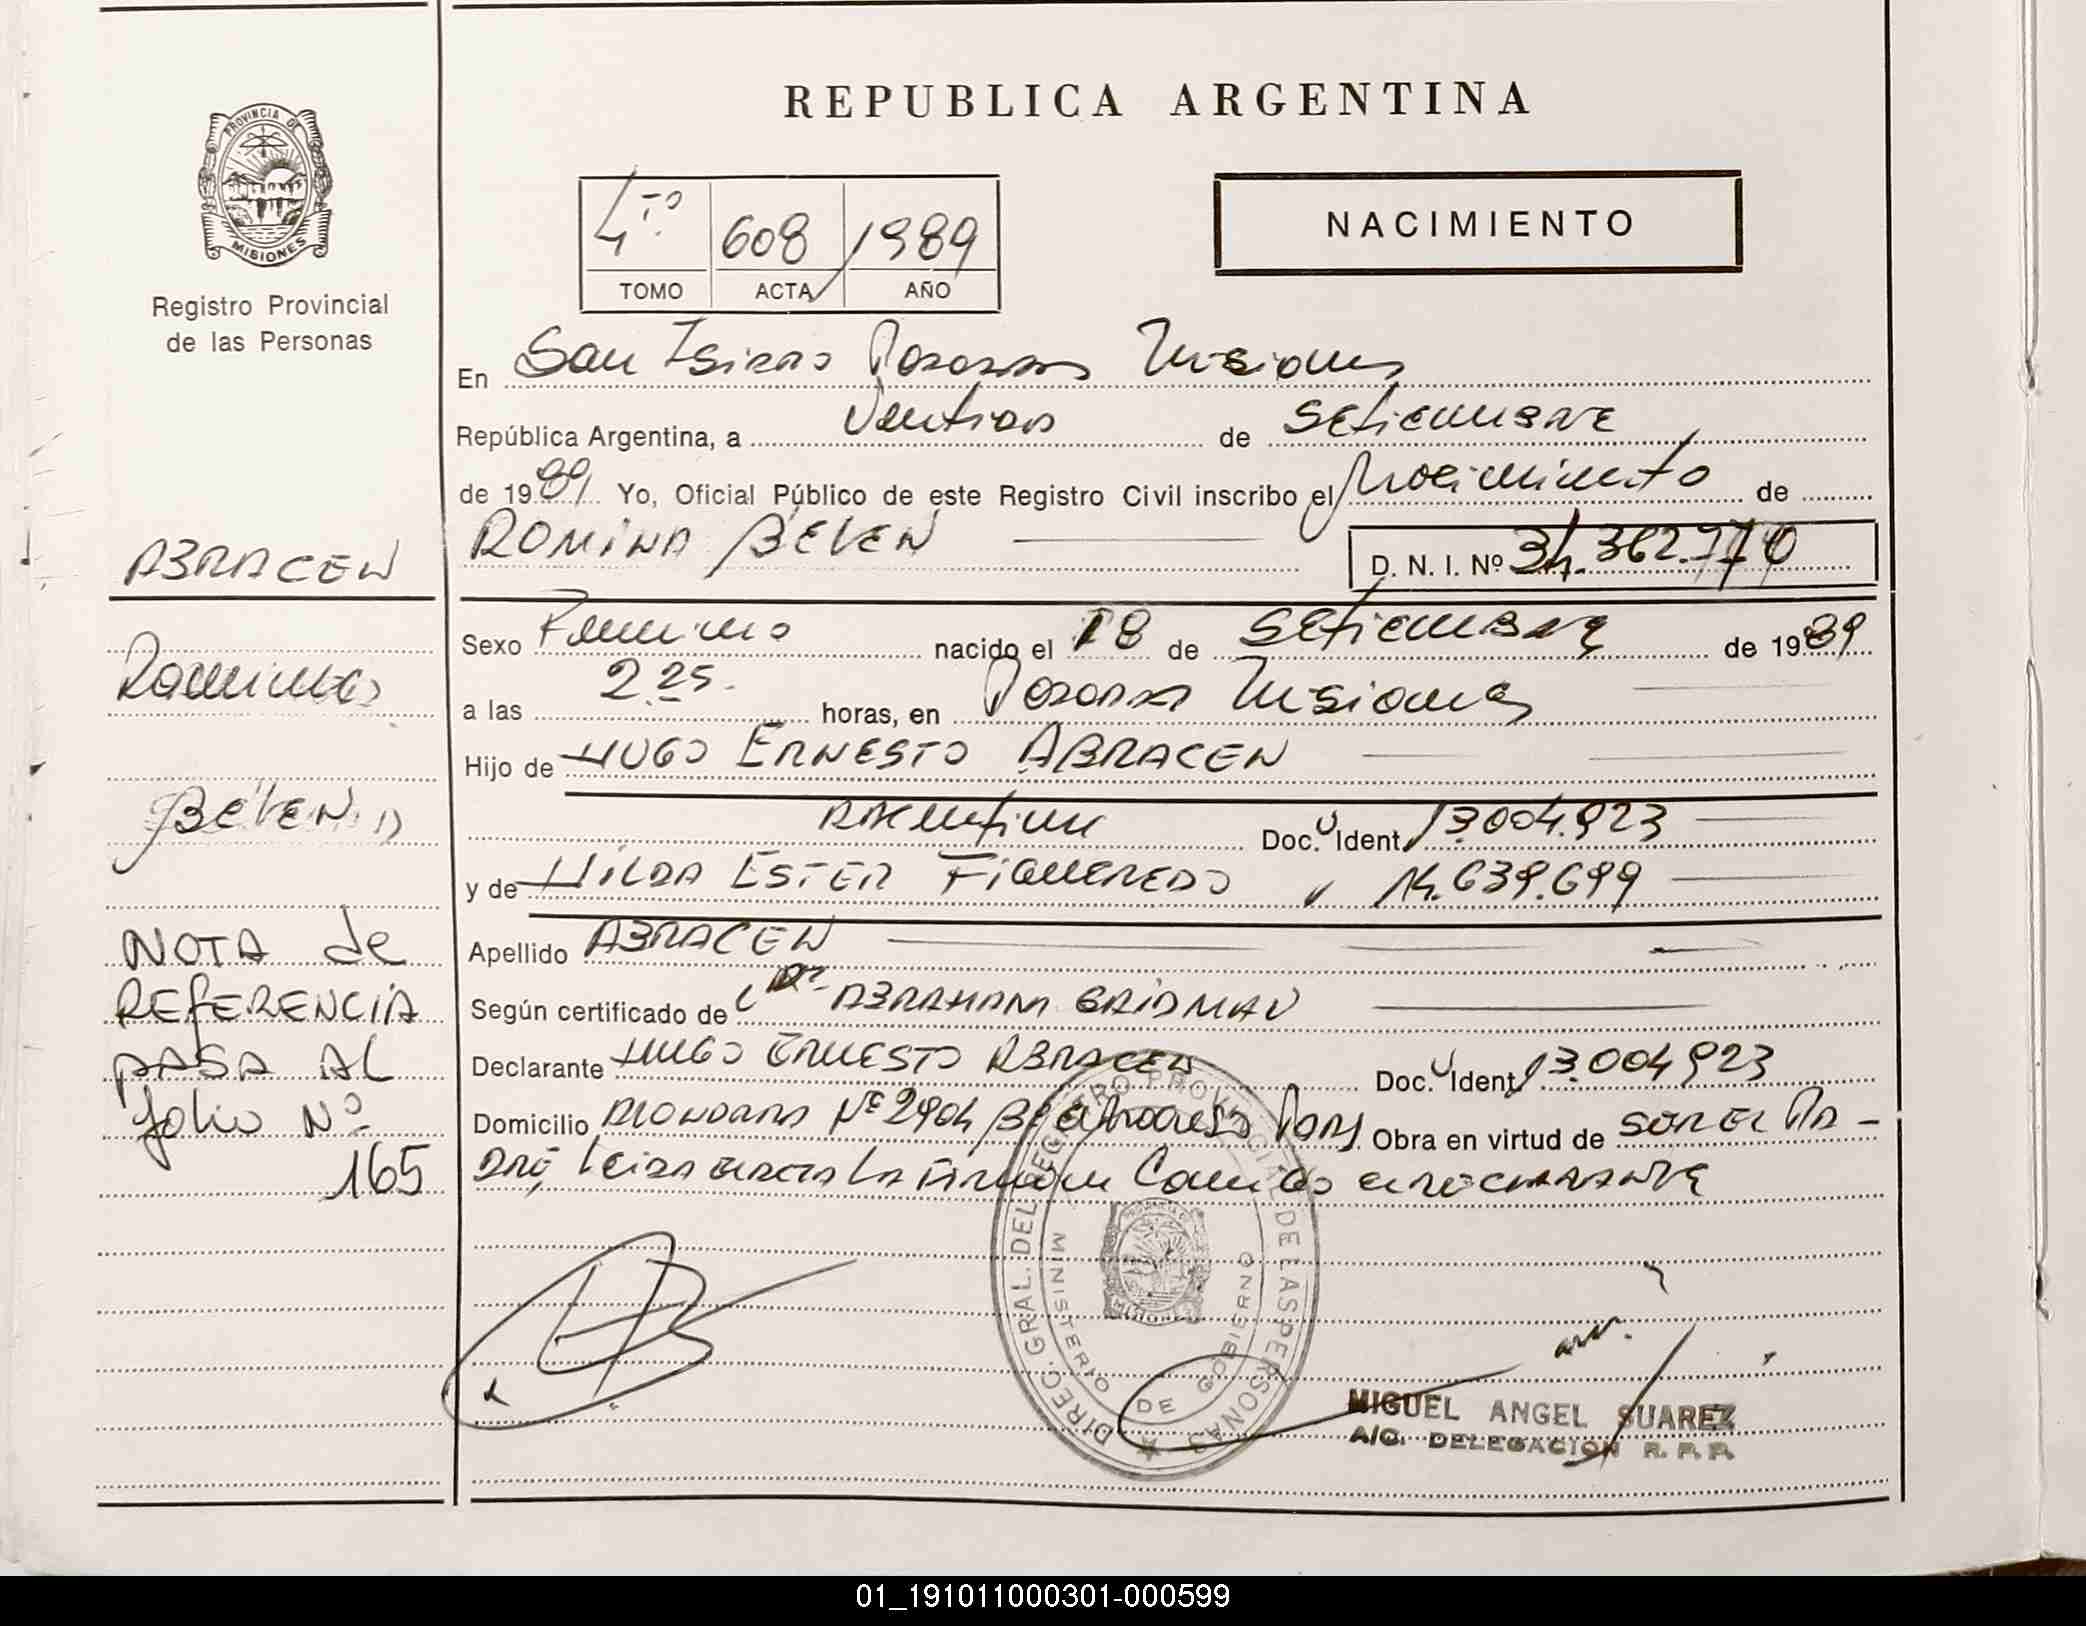 REPUBLICA ARGENTINA
PROVINCIA DE
MISIONES
Registro Provincial
de las Personas
4to 608 1989
TOMO ACTA AÑO
NACIMIENTO
En San Isidro Posadas Misiones
República Argentina, a Ventidos de Setiembre
de 1989 Yo, Oficial Público de este Registro Civil inscribo el Nacimiento de
ABRACEN
ROMINA BELEN
D. N. I. Nº 34.362.770
Romina
BELEN
Sexo Femenino nacido el 18 de Setiembre de 1989
a las 2.25. horas, en Posadas Misiones
Hijo de HUGO ERNESTO ABRACEN
Argentina Doc. Ident. 13.004.923
y de HILDA ESTER FIGUEREDO " 14.639.699
Apellido ABRACEN
Según certificado de ABRAHAM GRIDMAN
Declarante HUGO ERNESTO ABRACEN Doc. Ident 13.004.923
Domicilio Nº 2904 Obra en virtud de SER EL PA-
DRE, Leida acta La Firma Con el DECLARANTE
NOTA de
REFERENCIA
PASA AL
folio Nº
165
DIREC. GRAL. DEL REGISTRO PROVINCIAL DE LAS PERSONAS
MINISTERIO DE GOBIERNO
MIGUEL ANGEL SUAREZ
A/C. DELEGACION R. P. P.
01_191011000301-000599